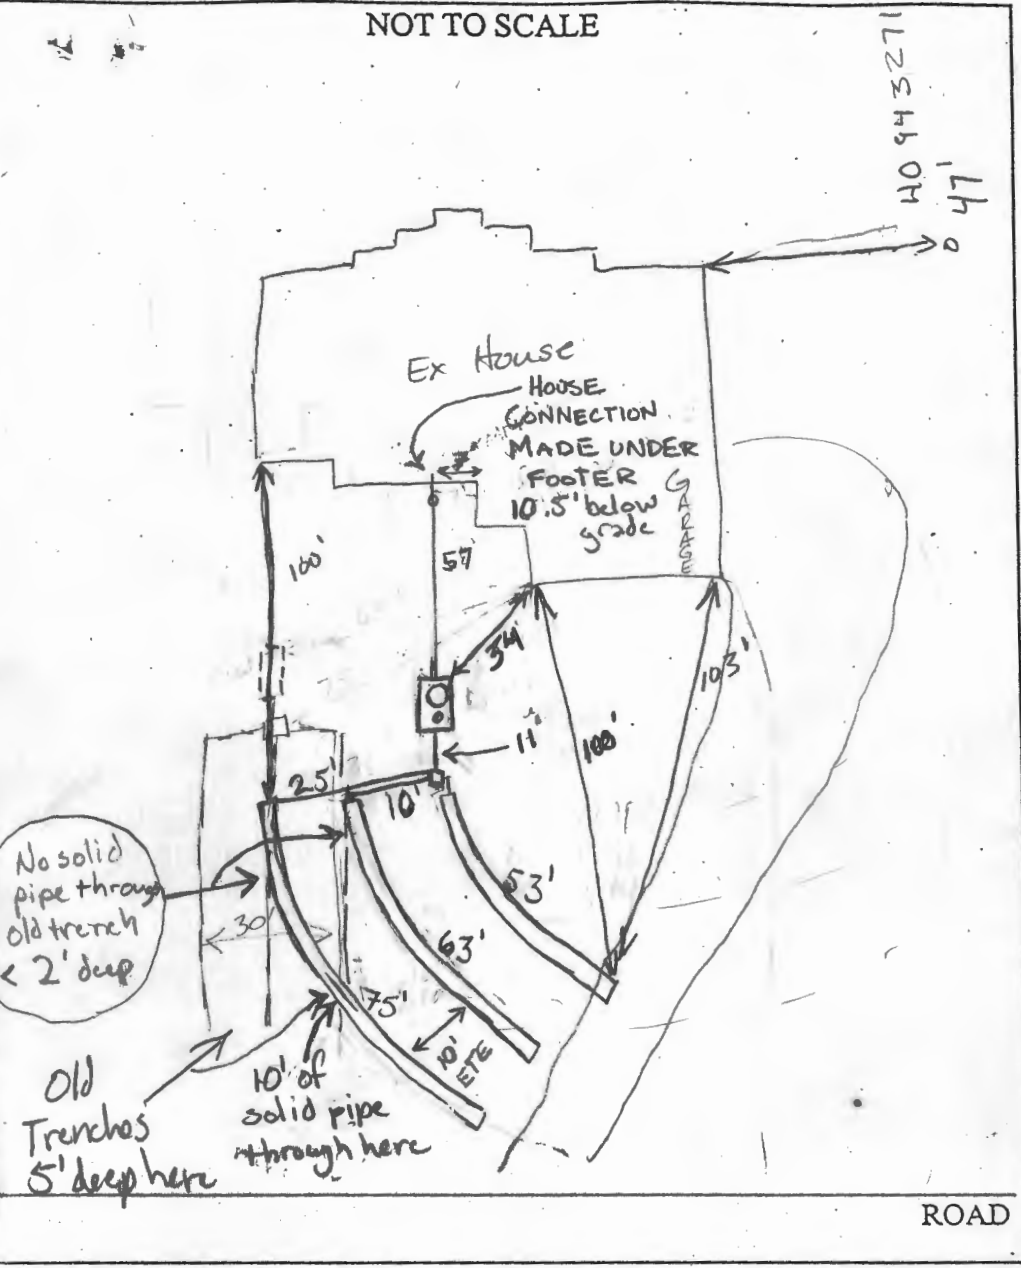 NOT TO SCALE
HO943271
47'
Ex House
HOUSE
CONNECTION
MADE UNDER
FOOTER
10.5' below
grade
7'
GARAGE
100'
57
34'
103'
11'
100'
25'
10'
53'
No solid
pipe through
old trench
< 2' deep
30'
63'
75'
10'
ETE
Old
Trenches
5' deep here
10' of
solid pipe
through here
ROAD